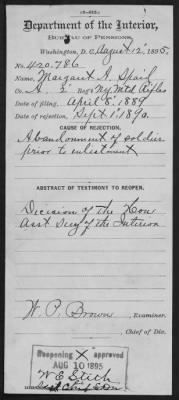 (3-812.)
Department of the Interior,
BUREAU OF PENSIONS,
Washington, D. C. August 12, 1895.
No. 420.786
Margaret A. Spail
Co. A. 2" Reg't Ky Mtd Rifles
Date of filing, April 8" 1889
Date of rejection, Sept 1" 1890.
CAUSE OF REJECTION.
Abandonment of soldier
prior to enlistment
ABSTRACT OF TESTIMONY TO REOPEN.
Decision of the Hon
Asst Secy of the Interior
W. P. Brown, Examiner.
, Chief of Div.
Reopening X approved
AUG 10 1895
W E Stich